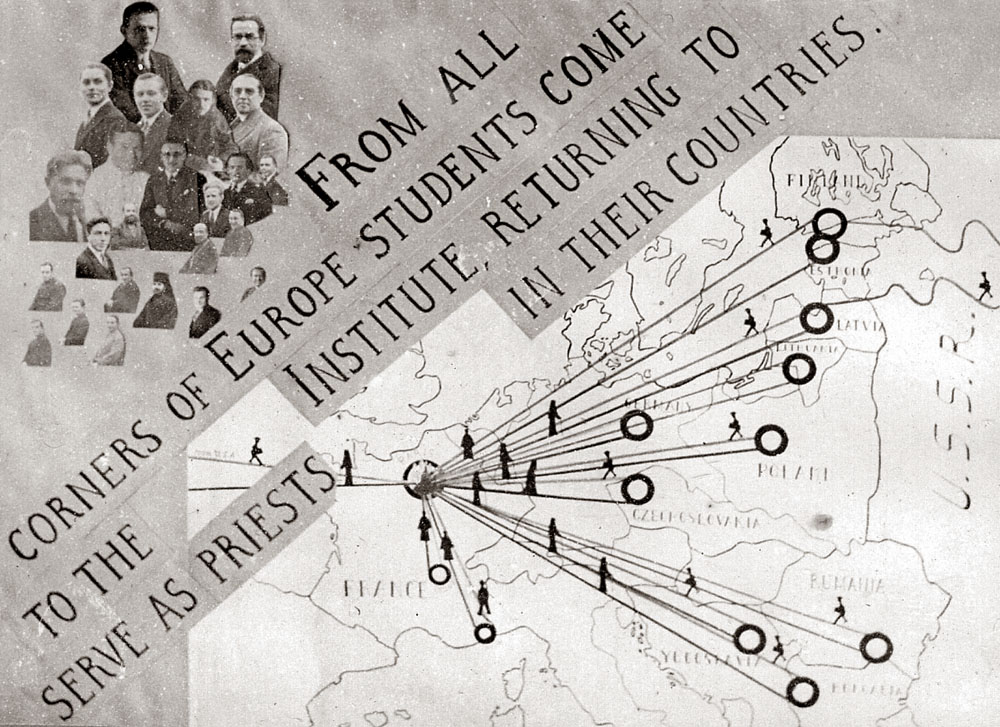 FROM ALL
CORNERS OF EUROPE STUDENTS COME
TO THE INSTITUTE, RETURNING TO
SERVE AS PRIESTS IN THEIR COUNTRIES.
FINLAND
ESTHONIA
LATVIA
LITHUANIA
U.S.S.R.
GERMANY
POLAND
CZECHOSLOVAKIA
FRANCE
RUMANIA
YUGOSLAVIA
BULGARIA